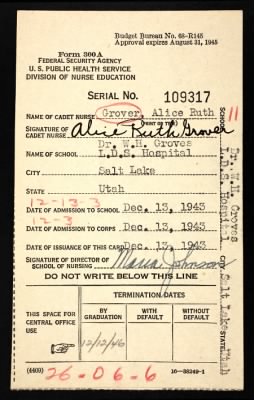 Budget Bureau No. 68-R145
Approval expires August 31, 1945
Form 300A
FEDERAL SECURITY AGENCY
U. S. PUBLIC HEALTH SERVICE
DIVISION OF NURSE EDUCATION
SERIAL NO. 109317
NAME OF CADET NURSE Grover, Alice Ruth
(PRINT OR TYPE)
SIGNATURE OF CADET NURSE Alice Ruth Grover
Dr. W.H. Groves
NAME OF SCHOOL L.D.S. Hospital
CITY Salt Lake
STATE Utah
12-13-3
DATE OF ADMISSION TO SCHOOL Dec. 13, 1943
12-3
DATE OF ADMISSION TO CORPS Dec. 13, 1943
DATE OF ISSUANCE OF THIS CARD Dec. 13, 1943
SIGNATURE OF DIRECTOR OF SCHOOL OF NURSING Maria Johnson
DO NOT WRITE BELOW THIS LINE
THIS SPACE FOR CENTRAL OFFICE USE
TERMINATION DATES
BY GRADUATION
WITH DEFAULT
WITHOUT DEFAULT
12/12/46
(4409)
16-38249-1
26-06-6
SCHOOL
11
Dr. W.H. Groves
L.D.S. Hospital
CITY Salt Lake
STATE Utah